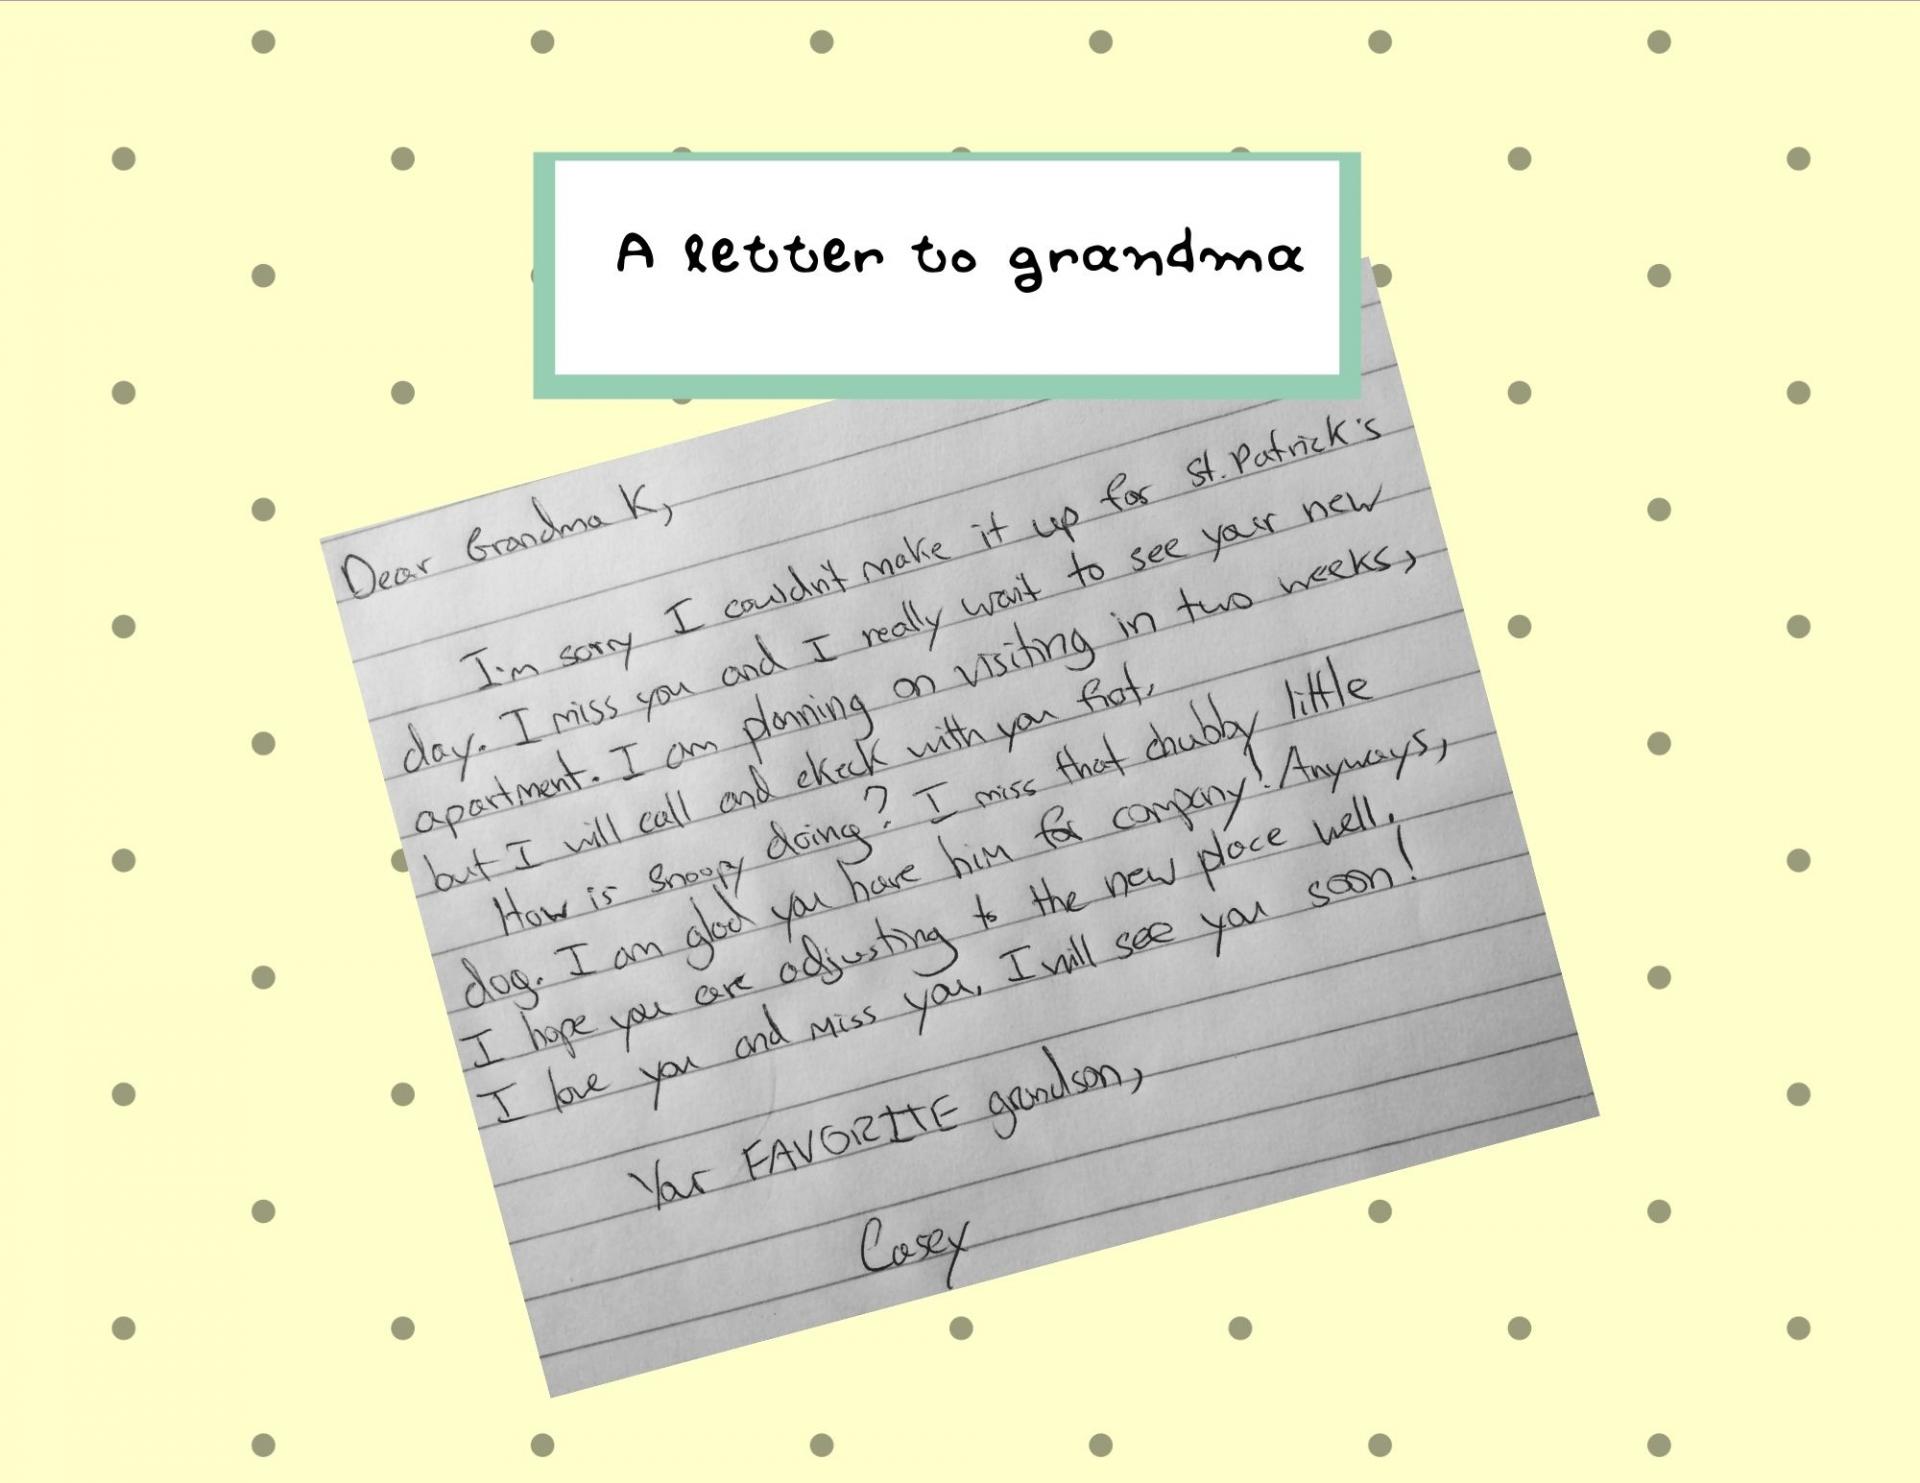 A letter to grandma
Dear Grandma K,
I'm sorry I couldn't make it up for St. Patrick's
day. I miss you and I really want to see your new
apartment. I am planning on visiting in two weeks,
but I will call and check with you first.
How is Snoopy doing? I miss that chubby little
dog. I am glad you have him for company! Anyways,
I hope you are adjusting to the new place well.
I love you and miss you. I will see you soon!
Your FAVORITE grandson,
Casey